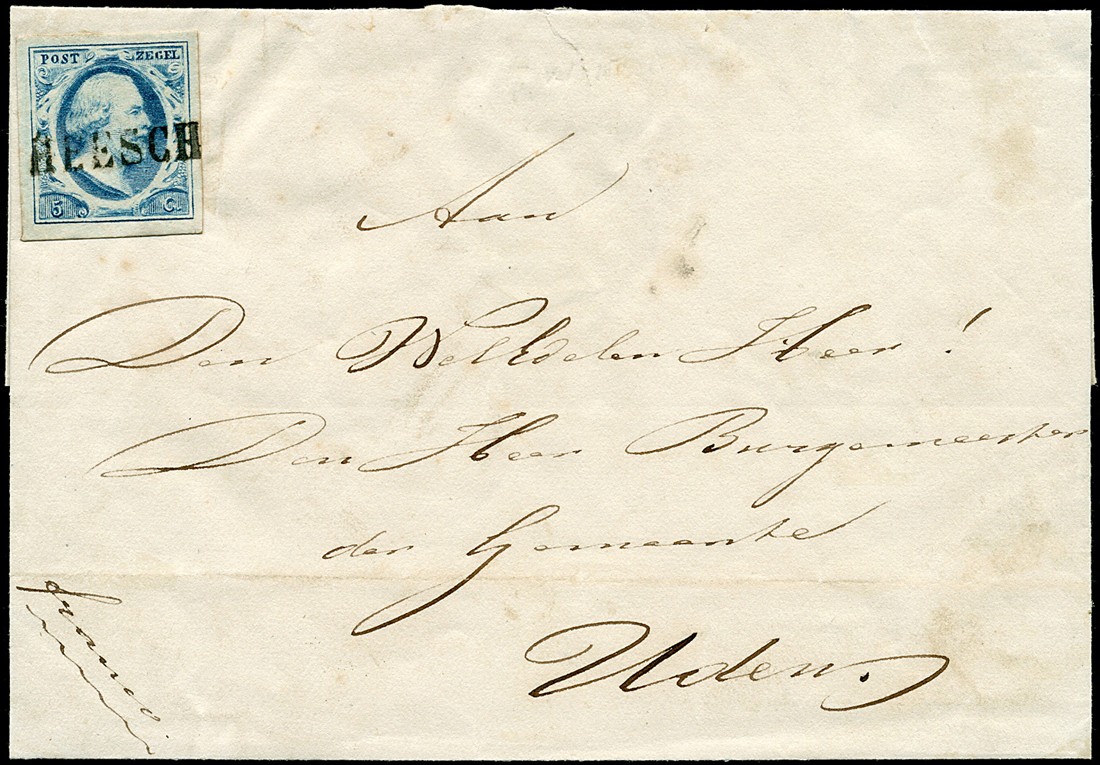 POST ZEGEL
HEESCH
5 Ct.
Aan
Den WelEdelen Heer!
Den Heer Burgemeester
der Gemeente
Uden.
franco